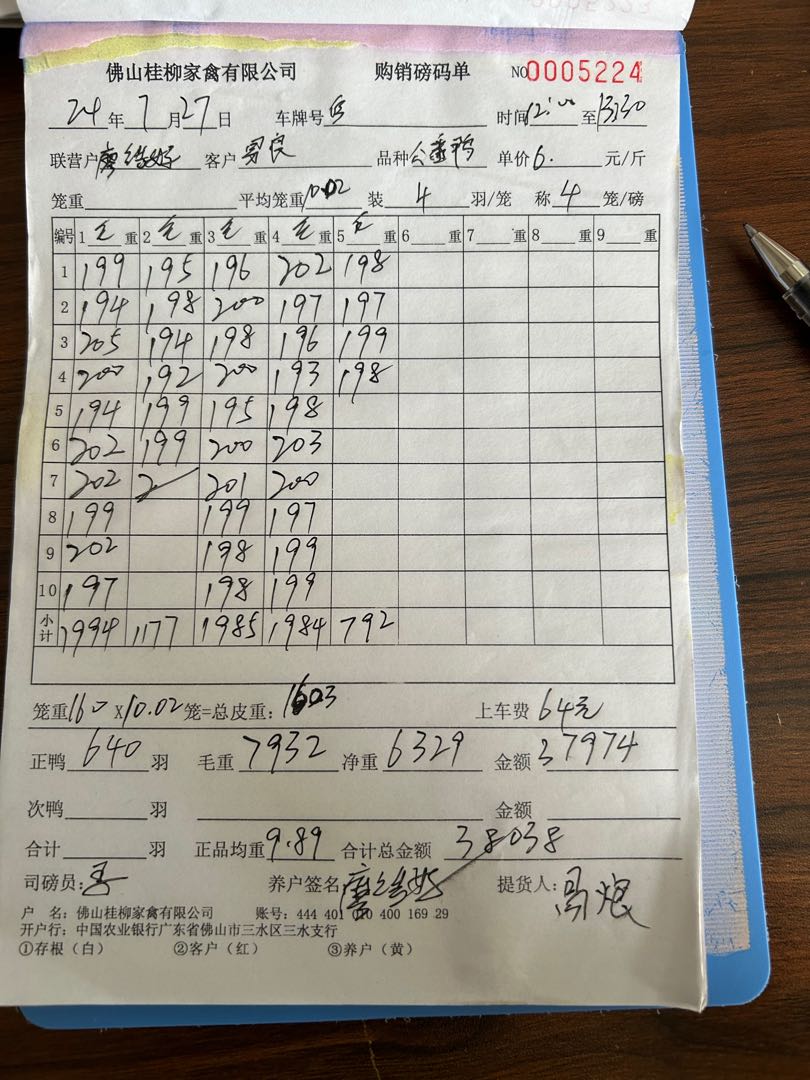 佛山桂柳家禽有限公司 购销磅码单 NO0005224
24年7月27日 车牌号 时间12:00至13:30
联营户 客户 品种公番鸭 单价6.元/斤
笼重 平均笼重10.02 装4羽/笼 称4笼/磅
编号 1毛重 2毛重 3毛重 4毛重 5毛重 6重 7重 8重 9重
1 199 195 196 202 198
2 194 198 200 197 197
3 205 194 198 196 199
4 200 192 200 193 198
5 194 199 195 198
6 202 199 200 203
7 202 201 200
8 199 199 197
9 202 198 199
10 197 198 199
小计 1994 1177 1985 1984 792
笼重160X10.02笼=总皮重:1603 上车费64元
正鸭640羽 毛重7932 净重6329 金额37974
次鸭羽 金额
合计羽 正品均重9.89 合计总金额38038
司磅员: 养户签名 提货人:
户 名:佛山桂柳家禽有限公司 账号:444 401 400 169 29
开户行:中国农业银行广东省佛山市三水区三水支行
①存根(白) ②客户(红) ③养户(黄)